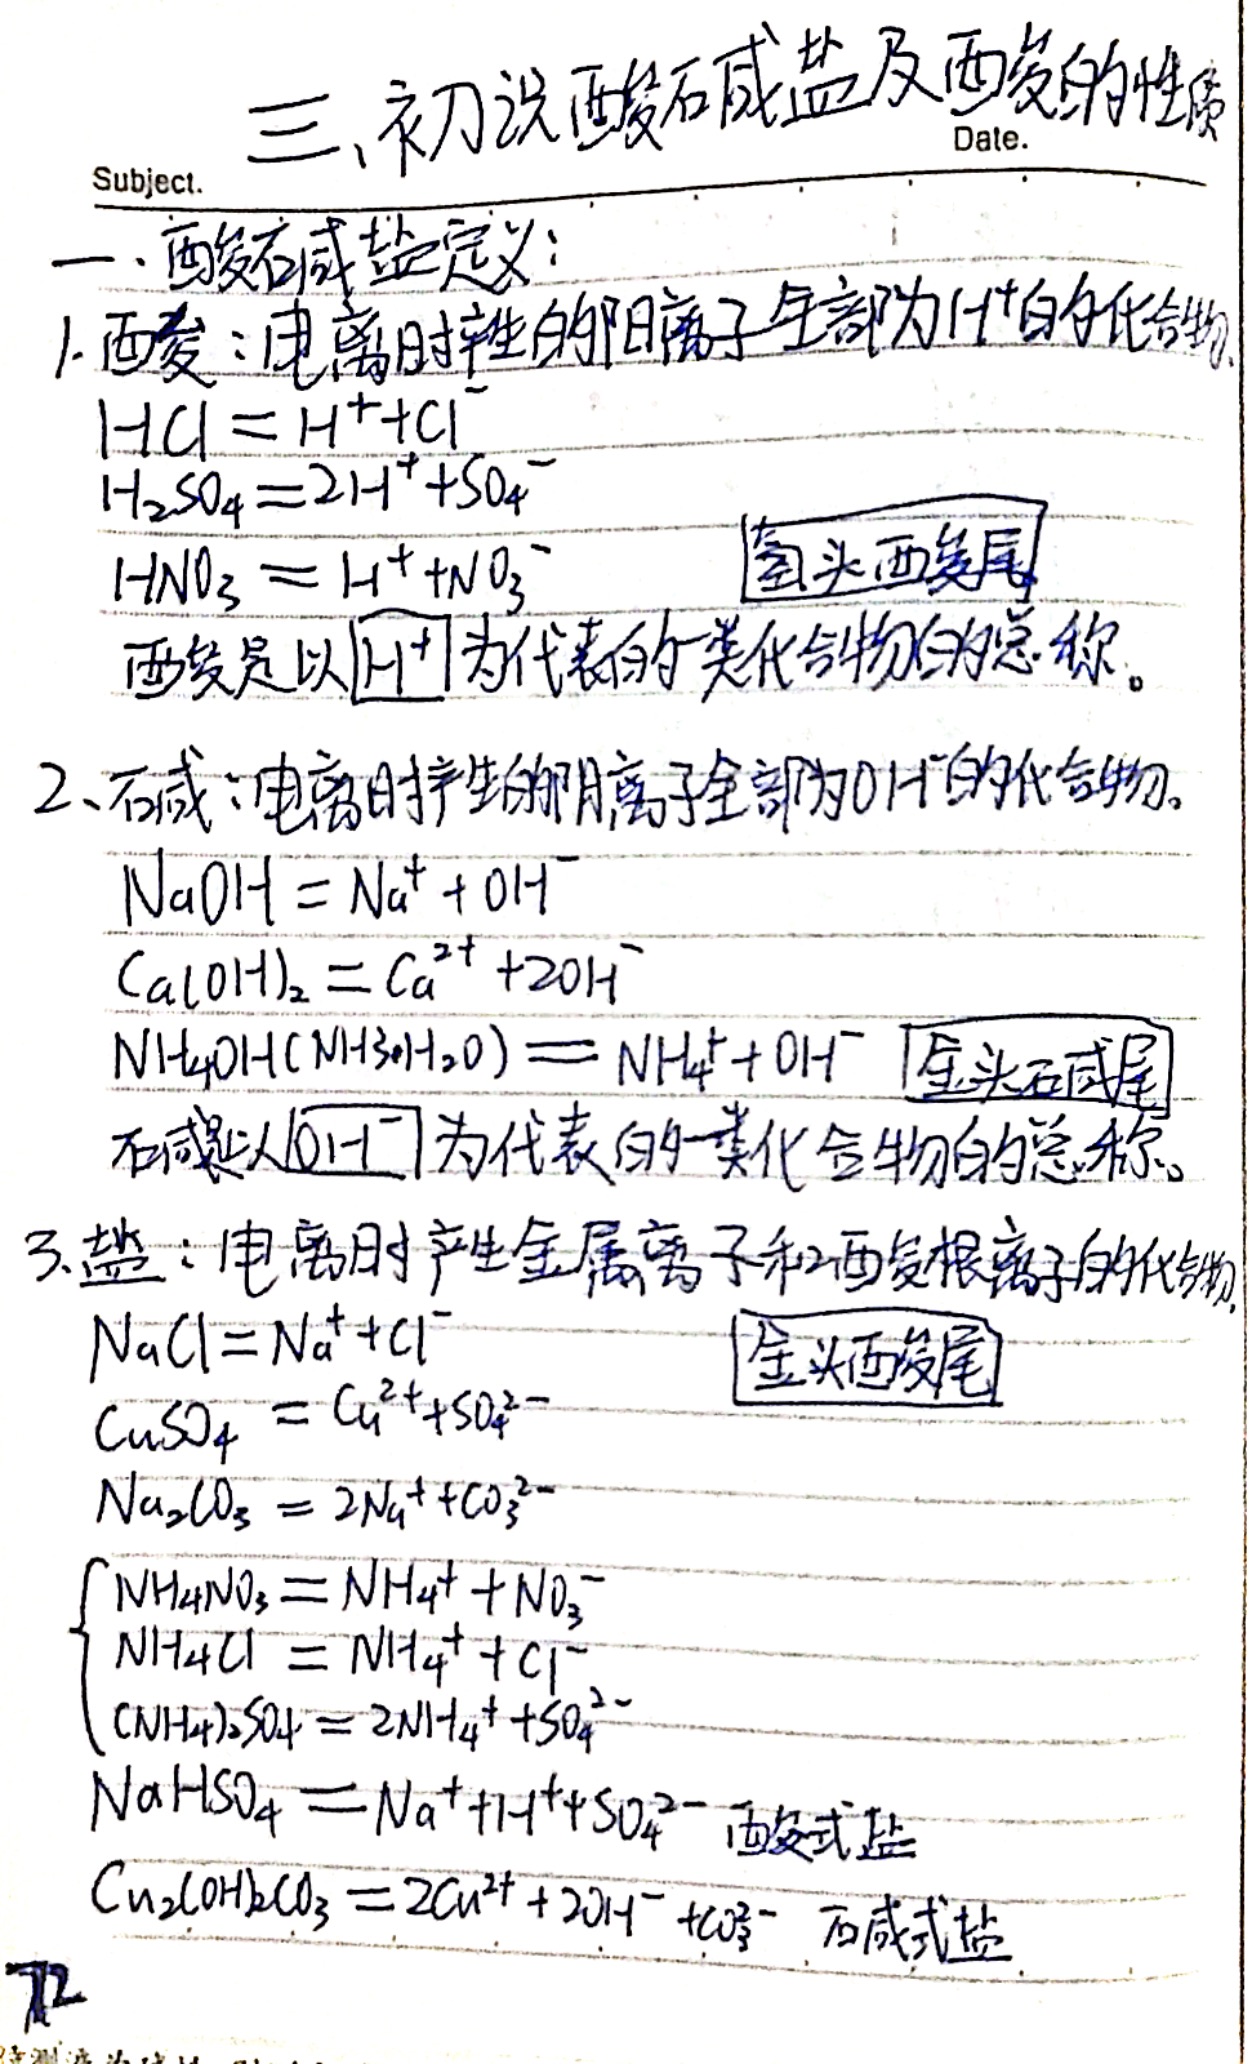 三、初说酸碱盐及酸的性质
Subject.
Date.
一.酸碱盐定义:
1.酸:电离时产生的阳离子全部为H⁺的化合物.
HCl=H⁺+Cl⁻
H₂SO₄=2H⁺+SO₄⁻
HNO₃=H⁺+NO₃⁻ 氢头酸尾
酸是以H⁺为代表的一类化合物的总称。
2、碱:电离时产生的阴离子全部为OH⁻的化合物。
NaOH=Na⁺+OH⁻
Ca(OH)₂=Ca²⁺+2OH⁻
NH₄OH(NH3·H₂O)=NH₄⁺+OH⁻ 金头碱尾
碱是以OH⁻为代表的一类化合物的总称。
3.盐:电离时产生金属离子和酸根离子的化合物.
NaCl=Na⁺+Cl⁻ 金头酸尾
CuSO₄=Cu²⁺+SO₄²⁻
Na₂CO₃=2Na⁺+CO₃²⁻
NH₄NO₃=NH₄⁺+NO₃⁻
NH₄Cl=NH₄⁺+Cl⁻
(NH₄)₂SO₄=2NH₄⁺+SO₄²⁻
NaHSO₄=Na⁺+H⁺+SO₄²⁻ 酸式盐
Cu₂(OH)₂CO₃=2Cu²⁺+2OH⁻+CO₃²⁻ 碱式盐